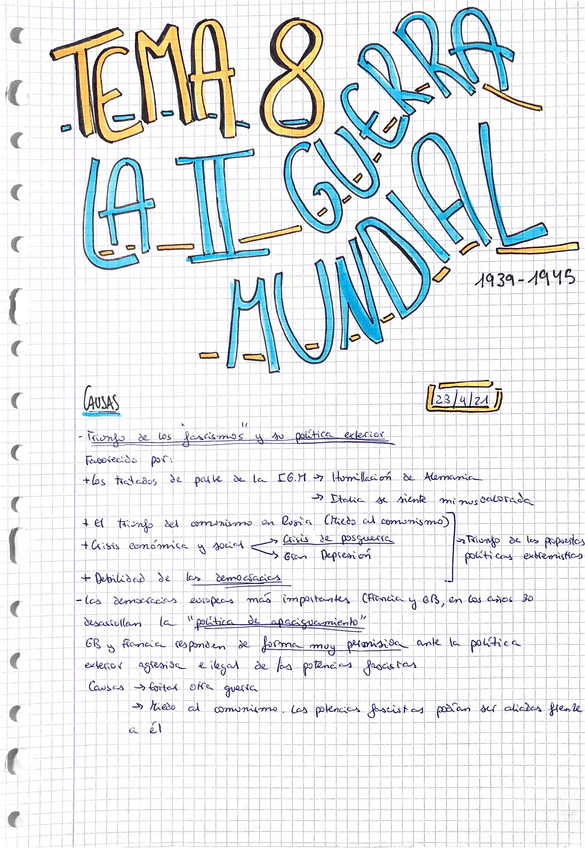 TEMA 8
LA II GUERRA
MUNDIAL
1939-1945
CAUSAS
23/4/21
- Triunfo de los "fascismos" y su política exterior
Favorecido por:
+ Los tratados de parte de la IG.M → Humillación de Alemania
→ Italia se siente minusvalorada
+ El triunfo del comunismo en Rusia (Miedo al comunismo)
+ Crisis económica y social → Crisis de posguerra
→ Gran Depresión
→ Triunfo de las propuestas
políticas extremistas
+ Debilidad de las democracias
- Las democracias europeas más importantes (Francia y GB, en los años 30
desarrollan la "política de apaciguamiento"
GB y Francia responden de forma muy permisida ante la política
exterior agresiva e ilegal de las potencias fascistas
Causas → Evitar otra guerra
→ Miedo al comunismo. Las potencias fascistas podían ser aliadas frente
a él